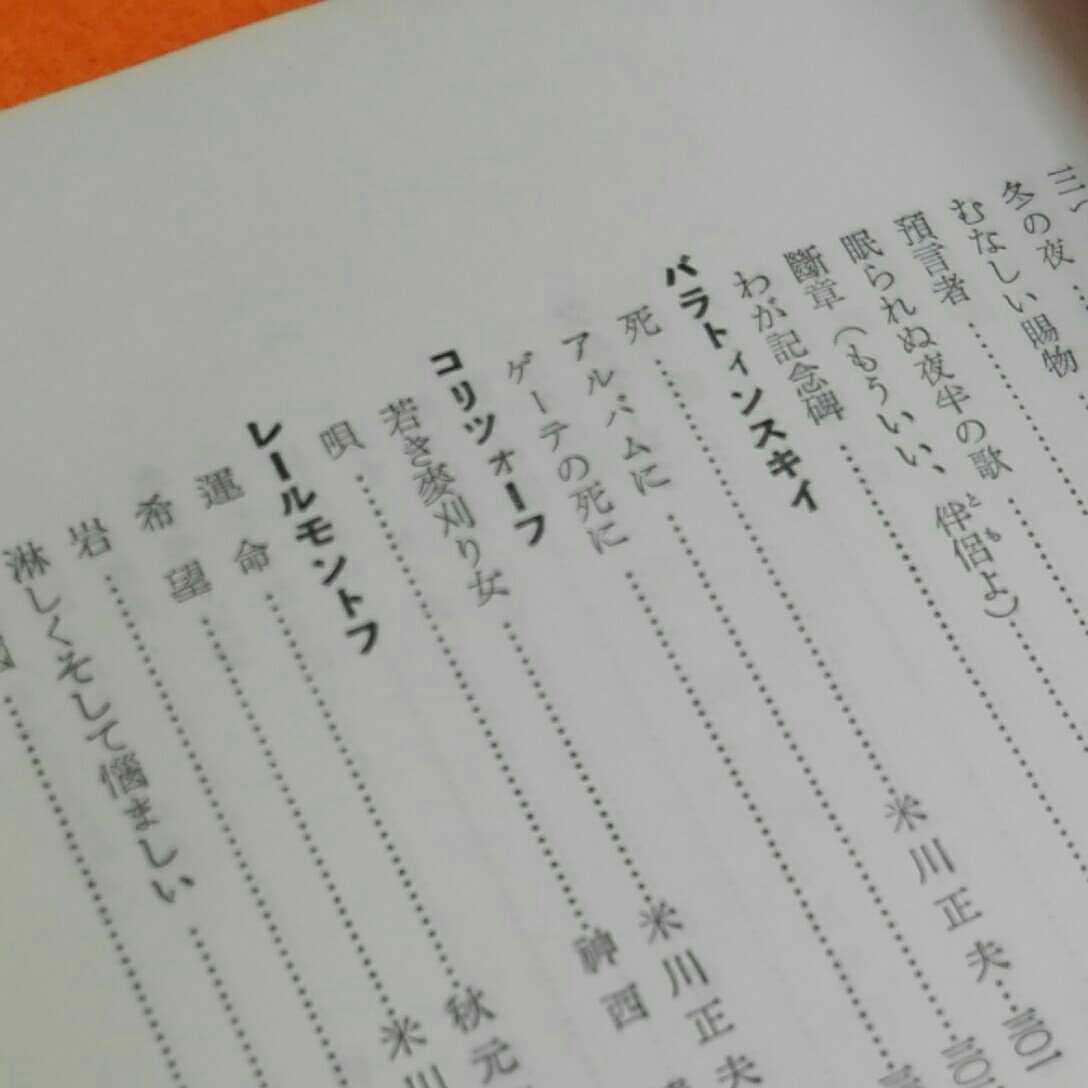 冬の夜……
むなしい賜物……
預言者……
眠られぬ夜半の歌……
斷章(もういい、伴侶よ)……
とも
わが記念碑……
バラトィンスキイ
死……米川正夫…三〇一
アルバムに……三〇
ゲーテの死に……
コリツォーフ
若き麥刈り女……米川正夫
唄……神西
レールモントフ
運命……秋元
希望……米川
岩……
淋しくそして惱ましい……